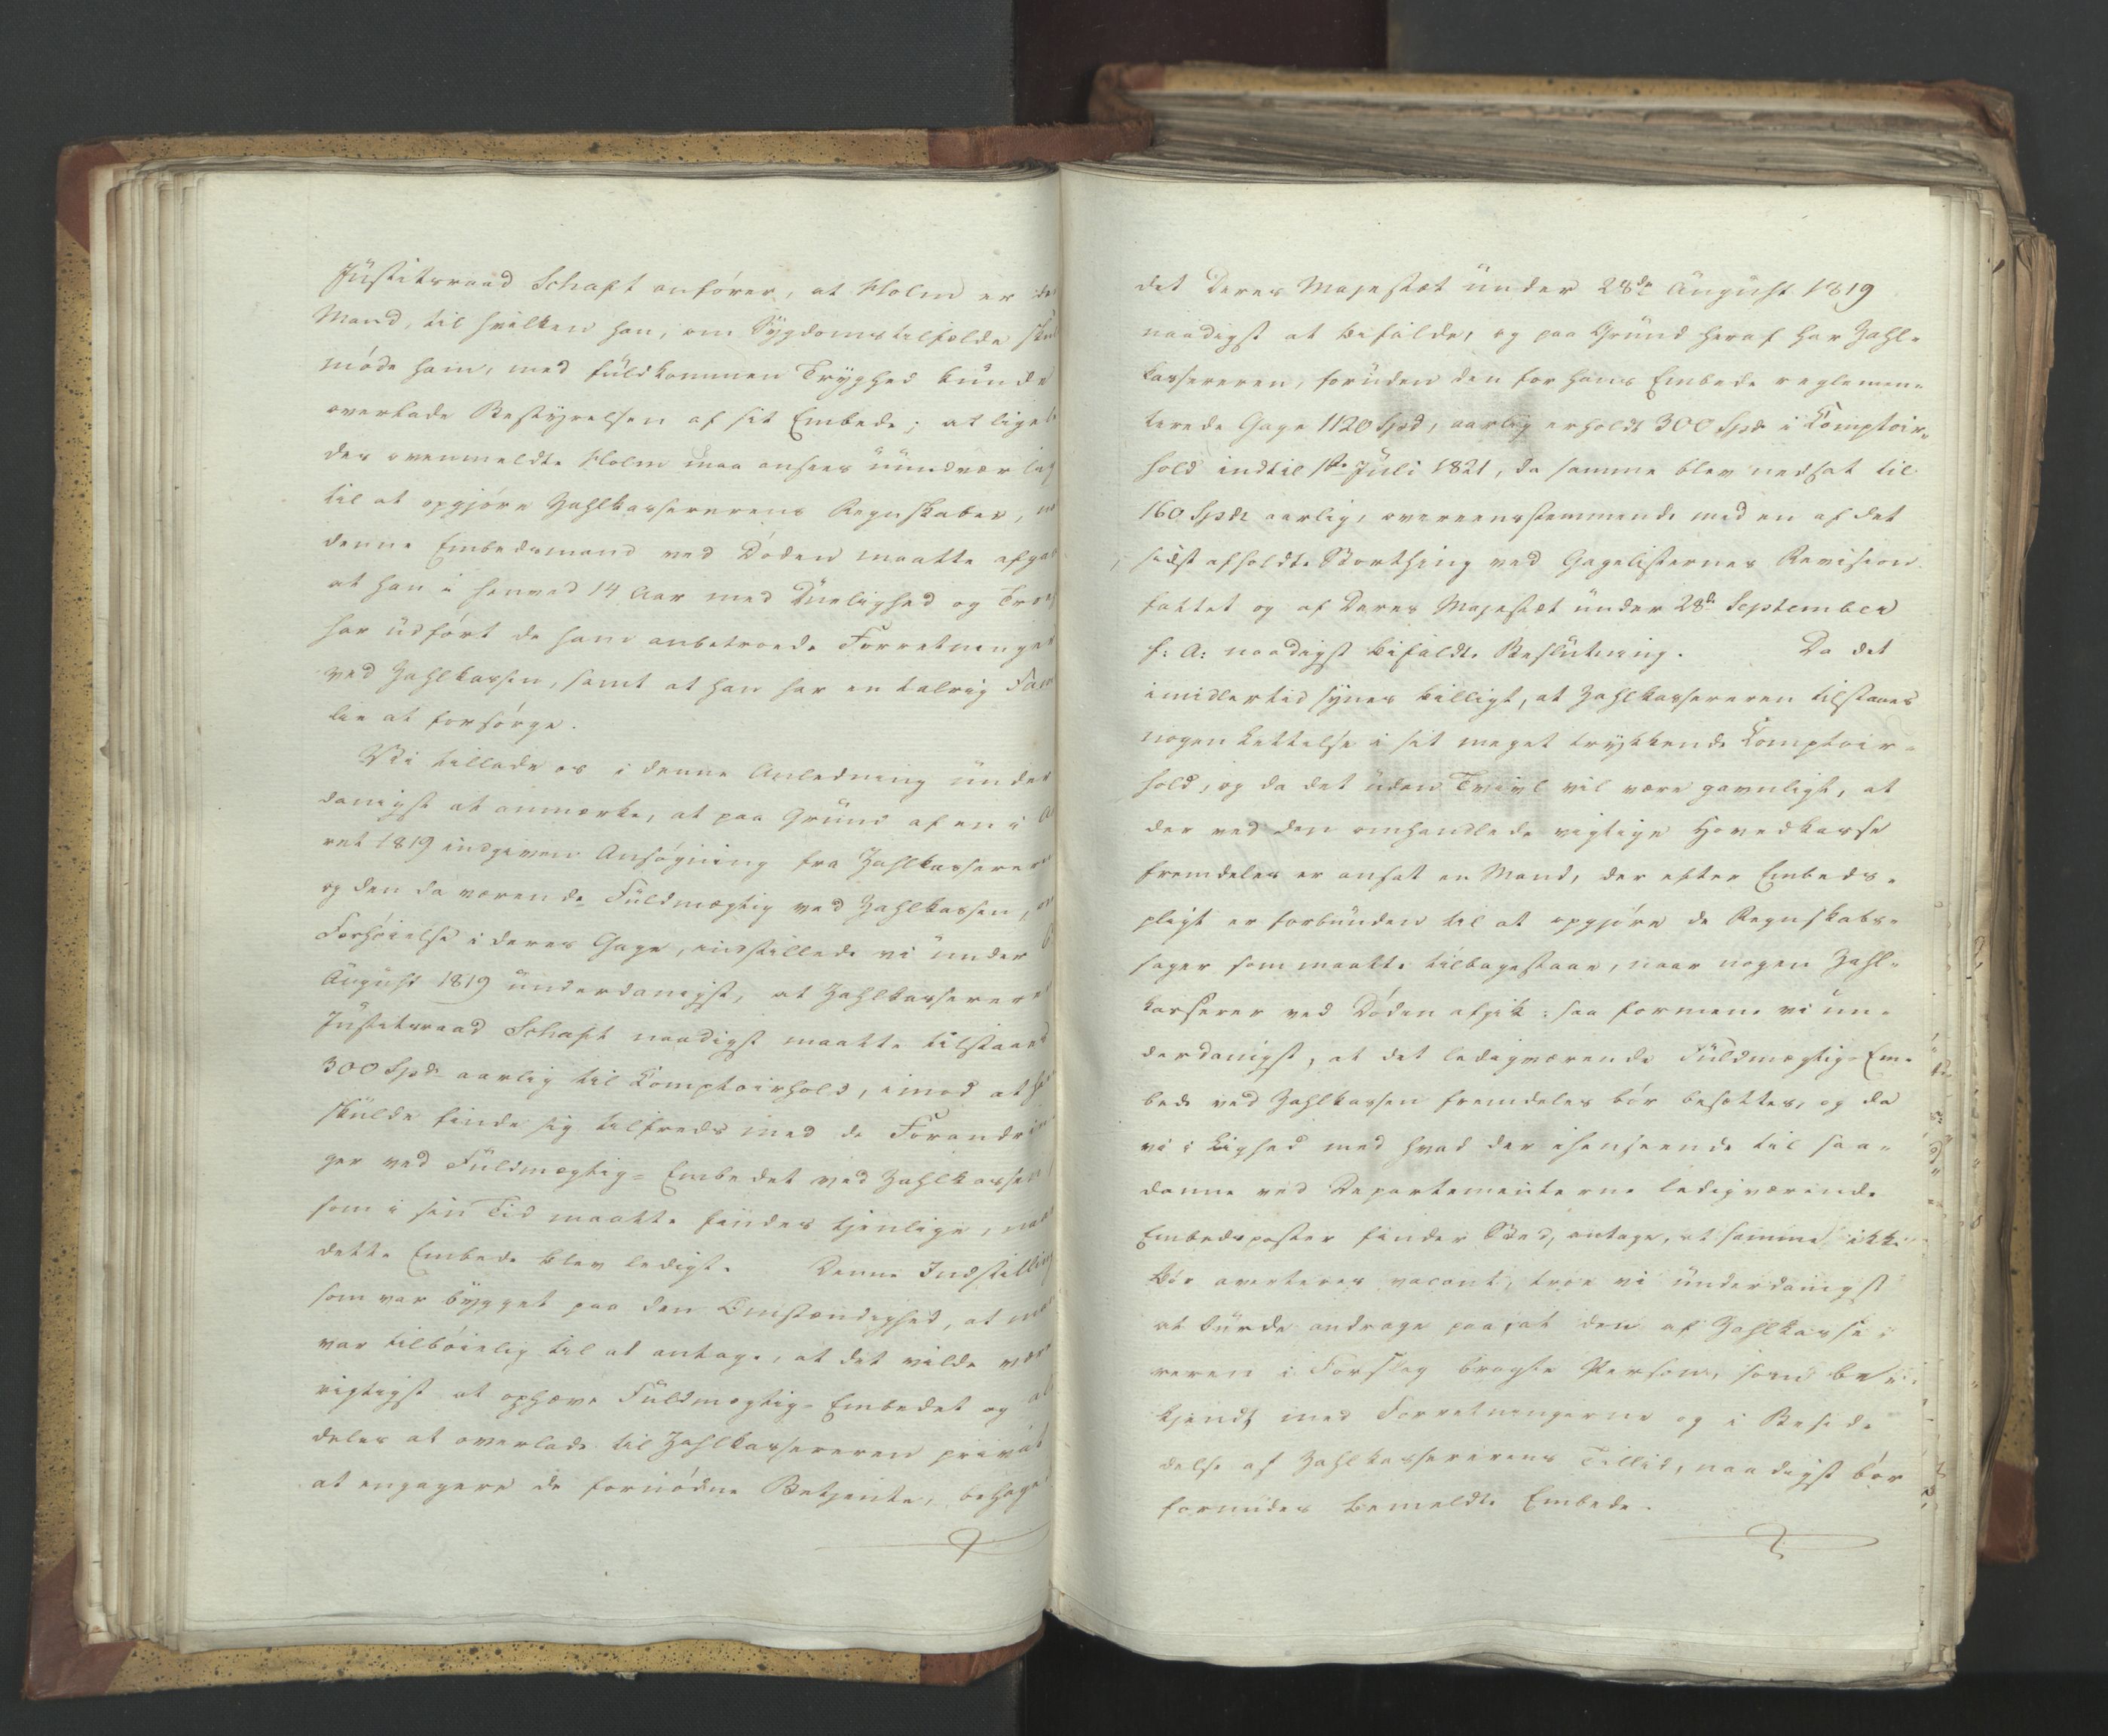 Justitsraad Schaft anfører, at Holm er den
Mand, til hvilken han, om Sygdomstilfælde skul
møde ham, med fuldkommen Tryghed kunde
overlade Bestyrelsen af sit Embede; at lige
des ovenmeldte Holm maa ansees uundværlig
til at opgjøre Zahlkassererens Regnskaber,
denne Embedsmand ved Døden maatte afgaa
at han i henved 14 Aar med Duelighed og Tro
har udført de ham anbetroede Forretninger
ved Zahlkassen, samt at han har en talrig Fam
lie at forsørge.
Vi tillade os i denne Anledning under
danigst at anmærke, at paa Grund af en i Aa
ret 1819 indgiven Ansøgning fra Zahlkasserer
og den da værende Fuldmægtig ved Zahlkassen, om
Forhøielse i deres Gage, indstillede vi under
August 1819 underdanigst, at Zahlkasserer
Justitsraad Schaft naadigst maatte tilstaaes
300 Spd aarlig til Comptoirhold, imod at han
skulde finde sig tilfreds med de Forandrin
ger ved Fuldmægtig-Embedet ved Zahlkassen
som i sin Tid maatte findes tjenlige, naar
dette Embede blev ledigt. Denne Indstilling
som var bygget paa den Omstændighed, at man
var tilbøielig til at antage, at det vilde være
rigtigst at ophæve Fuldmægtig-Embedet og al
deles at overlade til Zahlkassereren privat
at engagere de fornødne Betjente, behage
det Deres Majestæt under 28de August 1819
naadigst at bifalde, og paa Grund heraf har Zahl-
kassereren, foruden den for hans Embede reglemen-
terede Gage 1120 Spd, aarlig erholdt 300 Spd i Comptoir-
hold indtil 1ste Juli 1821, da samme blev nedsat til
160 Spd aarlig, overeensstemmende med en af det
sidst afholdte Storthing ved Gagelisternes Revision
fattet og af Deres Majestæt under 28de September
f: A: naadigst bifaldt Beslutning. Da det
imidlertid synes billigt, at Zahlkassereren tilstaaes
nogen Lettelse i sit meget trykkende Comptoir-
hold, og da det uden Tvivl vil være gavnligt, at
der ved den omhandlede vigtige Hovedkasse
fremdeles er ansat en Mand, der efter Embeds-
pligt er forbunden til at opgjøre de Regnskabs-
sager som maatte tilbagestaae, naar nogen Zahl-
kasserer ved Døden afgik: saa formene vi un-
derdanigst, at det ledigværende Fuldmægtig-Em-
bede ved Zahlkassen fremdeles bør besættes, og da
vi i Lighed med hvad der ihenseende til saa-
danne ved Departementerne ledigværende
Embedsposter finder Sted, antage, at samme ikke
bør averteres vacant, troe vi underdanigst
at burde andrage paa, at den af Zahlkasse-
reren i Forslag bragte Person, som be-
kjendt med Forretningerne og i Besid-
delse af Zahlkassererens Tillid, naadigst bør
forundes bemeldte Embede.